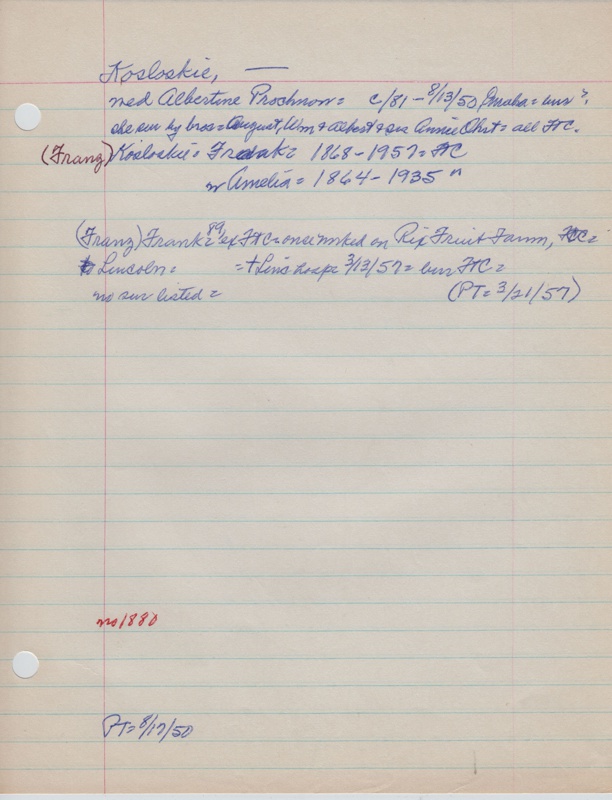 Kosloskie, —
med Albertine Prochnow = c/81 – 8/13/50 Omaha = bur ?,
she sur by bros = August, Wm & Albert & sis Annie Ohrt = all FtC.
(Franz) Kosloskie = Frank = 1868 - 1957 = FtC
w Amelia = 1864 - 1935 "
(Franz) Frank = 89 ex FtC = once worked on Rix Fruit Farm, FtC =
to Lincoln = = + Linc hosp = 3/13/57 = bur FtC =
no sur listed = (PT = 3/21/57)
no 1880
PT = 8/17/50